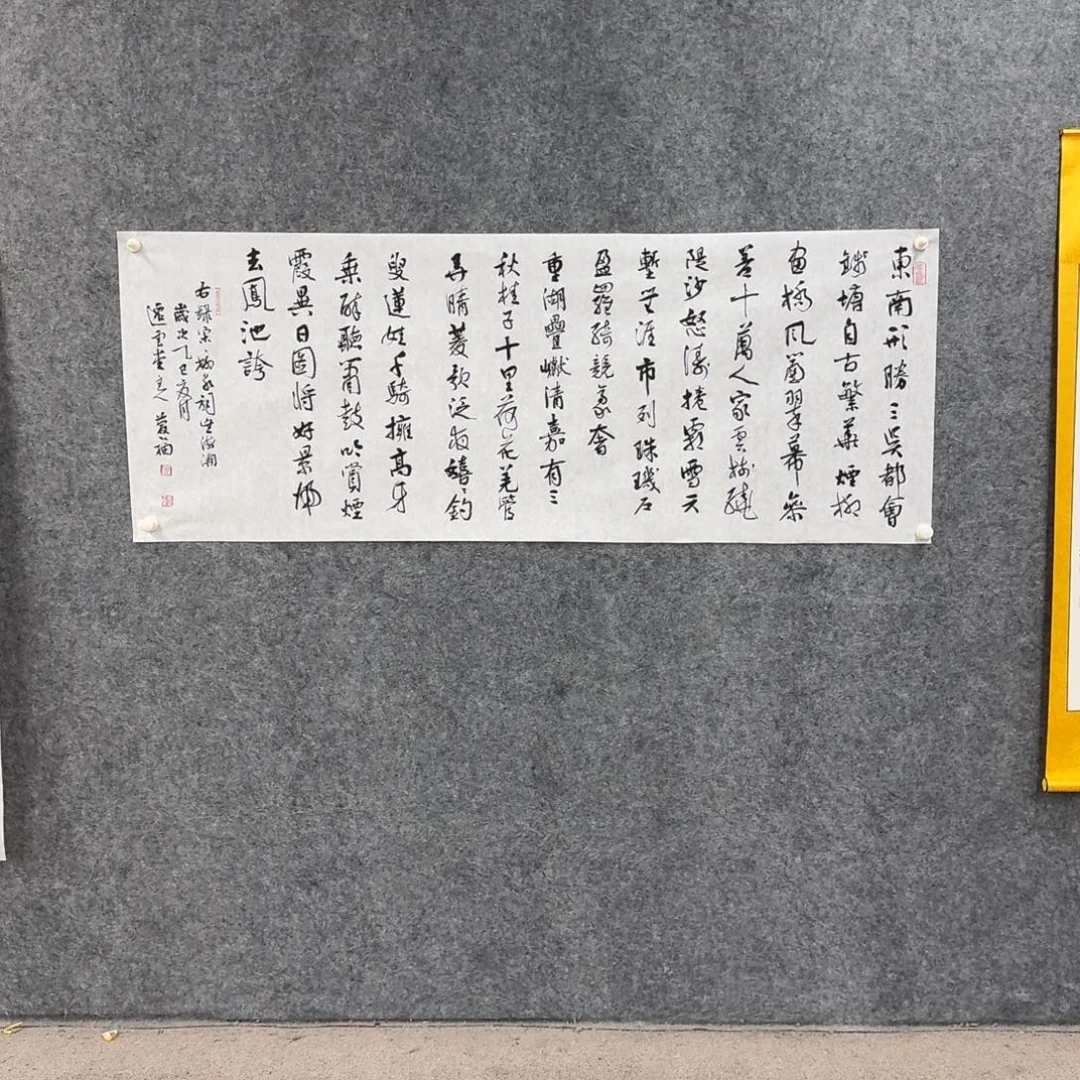 東南形勝三吳都會
錢塘自古繁華煙柳
畫橋風簾翠幕參
差十萬人家雲樹繞
隄沙怒濤捲霜雪天
塹無涯市列珠璣户
盈羅綺競豪奢
重湖疊巘清嘉有三
秋桂子十里荷花羌管
弄晴菱歌泛夜嬉嬉釣
叟蓮娃千騎擁高牙
乘醉聽簫鼓吟賞煙
霞異日圖將好景歸
去鳳池誇
右錄宋柳永詞望海潮
歲次丁巳夏月